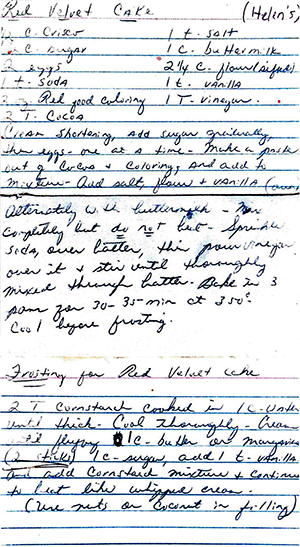 Red Velvet CAKE (Helen's)
½ C. Crisco 1 t. salt
C. sugar 1 C. buttermilk
2 eggs 2½ C. flour (sifted)
1 t. soda 1 t. vanilla
Red food coloring 1 T. vinegar
2 T. Cocoa
Cream shortening, add sugar gradually,
then eggs - one at a time - Make a paste
out of Cocoa & Coloring, and add to
mixture - Add salt, flour & vanilla (over)
Alternately with buttermilk - Mix
completely but do not beat - Sprinkle
soda, over batter, then pour vinegar
over it & stir until thoroughly
mixed through batter. Bake in 3
pans for 30-35 min at 350°
Cool before frosting.
Frosting for Red Velvet cake
2 T Cornstarch cooked in 1 C. water
until thick - Cool thoroughly - Cream
until fluffy 1C - butter or margarine
(2 sticks) 1C - sugar, add 1 t. vanilla
and add Cornstarch mixture & Continue
to beat like whipped cream.
(Use nuts or Coconut in filling)